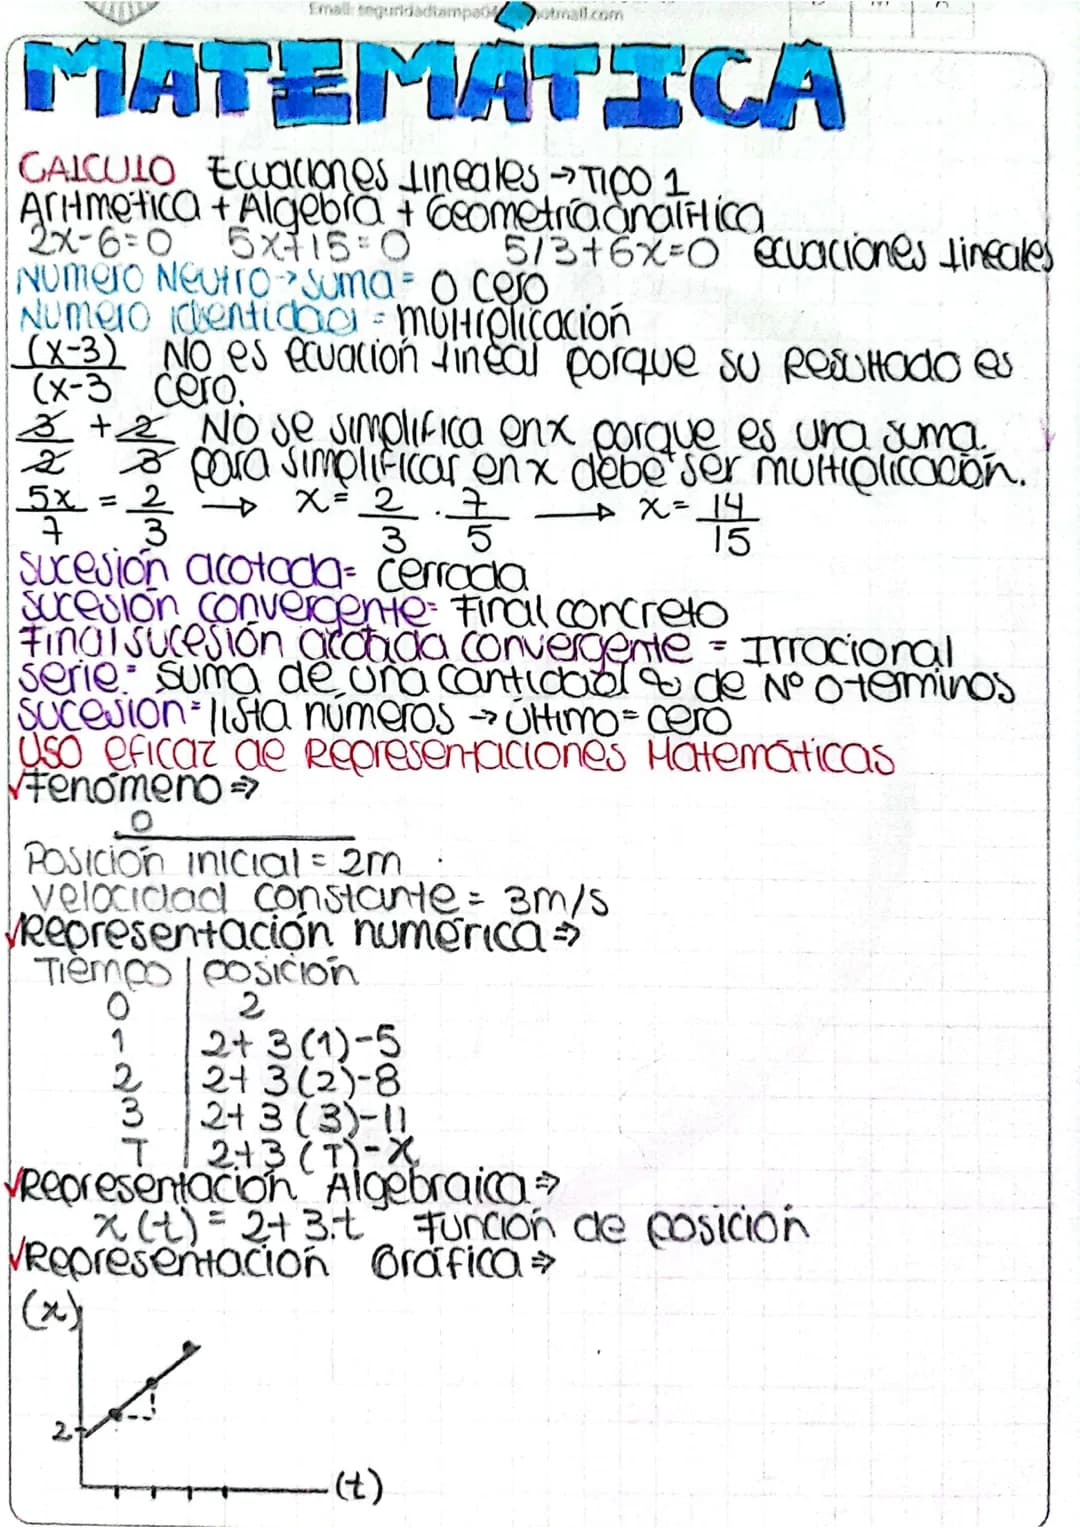 Email: seguridadtampa04 hotmail.com
MATEMÁTICA
CALCULO Ecuaciones lineales → Tipo 1
Aritmetica + Algebra + Geometría analítica
2x-6=0 5x+15=0 5/3+6x=0 ecuaciones lineales
Numero Neutro → suma = 0 cero
Numero identidad = multiplicación
(x-3) No es ecuación lineal porque su Resultado es
(x-3 cero.
3/2 + 2/3 No se simplifica en x porque es una suma.
para simplificar en x debe ser multiplicación.
5x/7 = 2/3 → x = 2/3 . 7/5 → x = 14/15
sucesión acotada = cerrada
sucesión convergente = Final concreto
Final sucesión acotada convergente = Irracional
serie = suma de una cantidad ∞ de Nº o terminos
sucesion = lista números → último = cero
USO eficaz de Representaciones Matemáticas
√ Fenómeno ⇒
0
Posición inicial = 2m
velocidad constante = 3m/s
√ Representación numérica ⇒
Tiempo | posición
0 2
1 2+3(1)-5
2 2+3(2)-8
3 2+3(3)-11
T 2+3(T)-x
√ Representación Algebraica ⇒
x(t) = 2+3.t Función de posición
√ Representación Gráfica ⇒
(x)
2
(t)